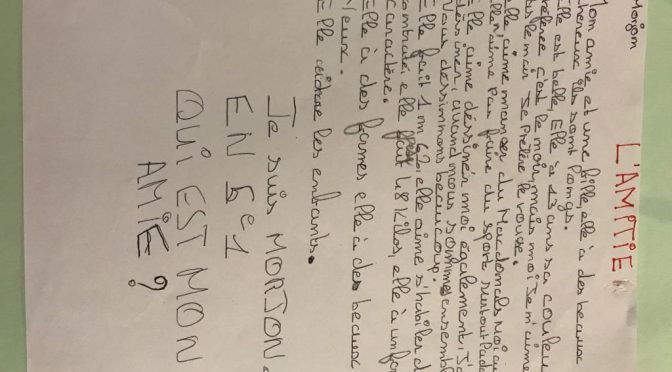 Morjon
L'AMPTIE
Mon amie et une fille, elle à des beaux
chereux ils sont longs.
Elle est belle, Elle à 13 ans sa couleu
préferee c'est le noir, mais moi Je n'aime
pas le noir Je préfère le rouge.
Elle aime manger du Macdonals Moi au
elle n'aime pas faire du sport surtout
Elle aime déssiner moi également, J'a
dessiner, quand nous sommes ensemble
Nous dessimmons beaucoup.
Elle fait 1 m 62, elle aime s'habiler d
elle fait 48 kilos, elle à un for
caractère.
Elle à des formes elle à des beaux
Yeux.
Elle les enfants.
Je suis MORJON.
EN 5e1
QUi EST MON
AMiE ?